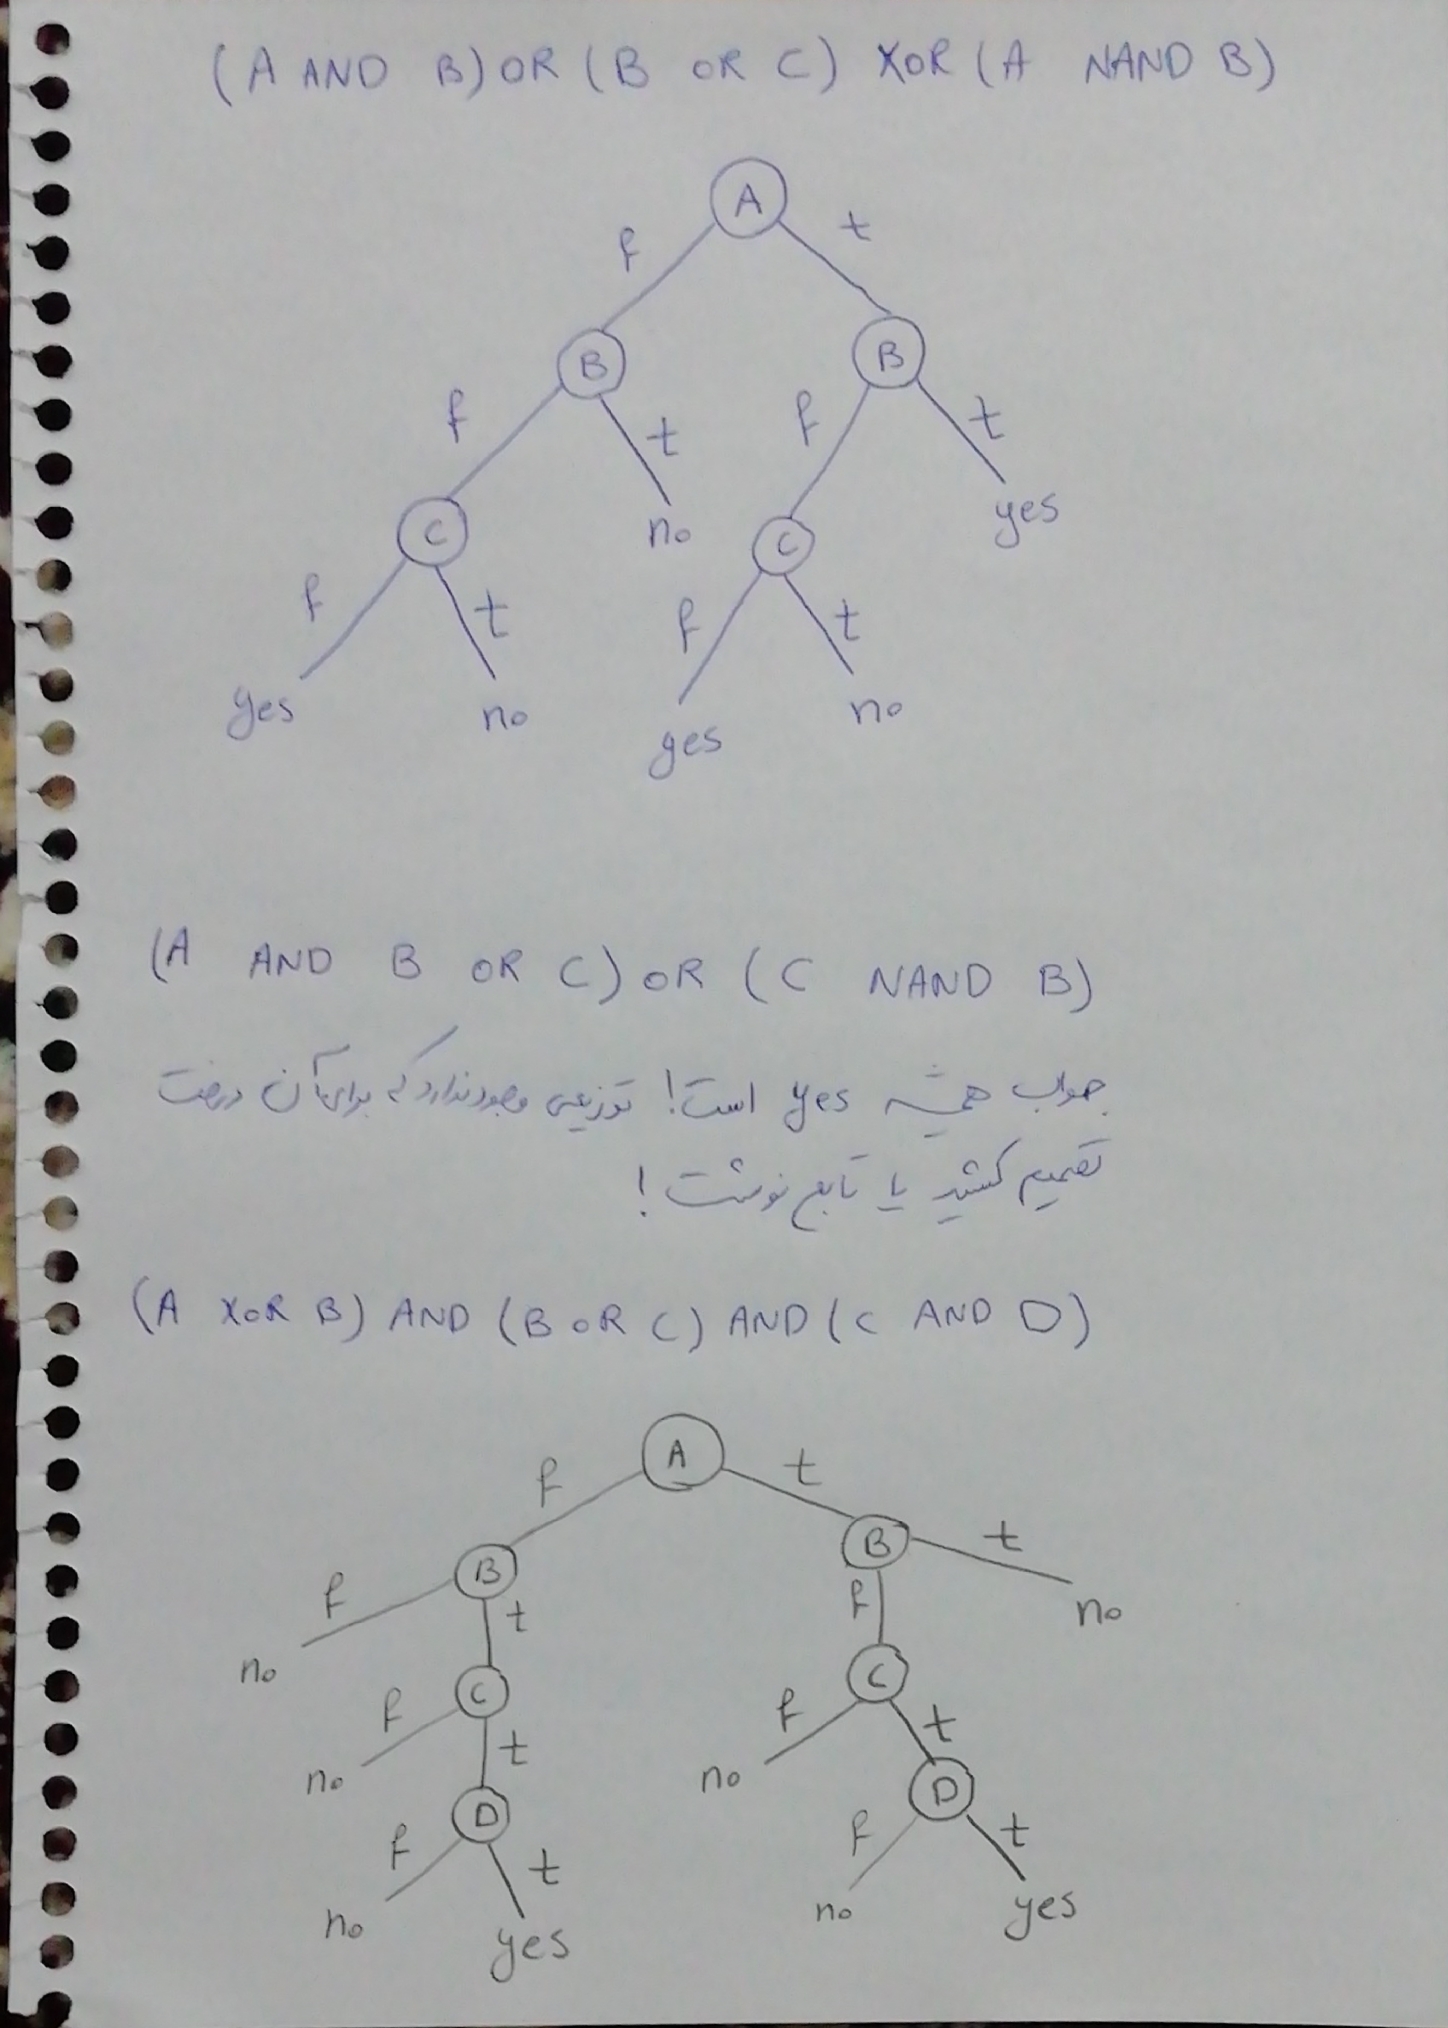 (A AND B) OR (B OR C) XOR (A NAND B)
A
f t
B B
f t f t
C no C yes
f t f t
yes no yes no
(A AND B OR C) OR (C NAND B)
جواب همیشه yes است! توزیعی وجود ندارد که برای آن درخت
تصمیم کشید یا تابع نوشت!
(A XOR B) AND (B OR C) AND (C AND D)
A
f t
B B
f t f t
no C C no
f t f t
no D no D
f t f t
no yes no yes